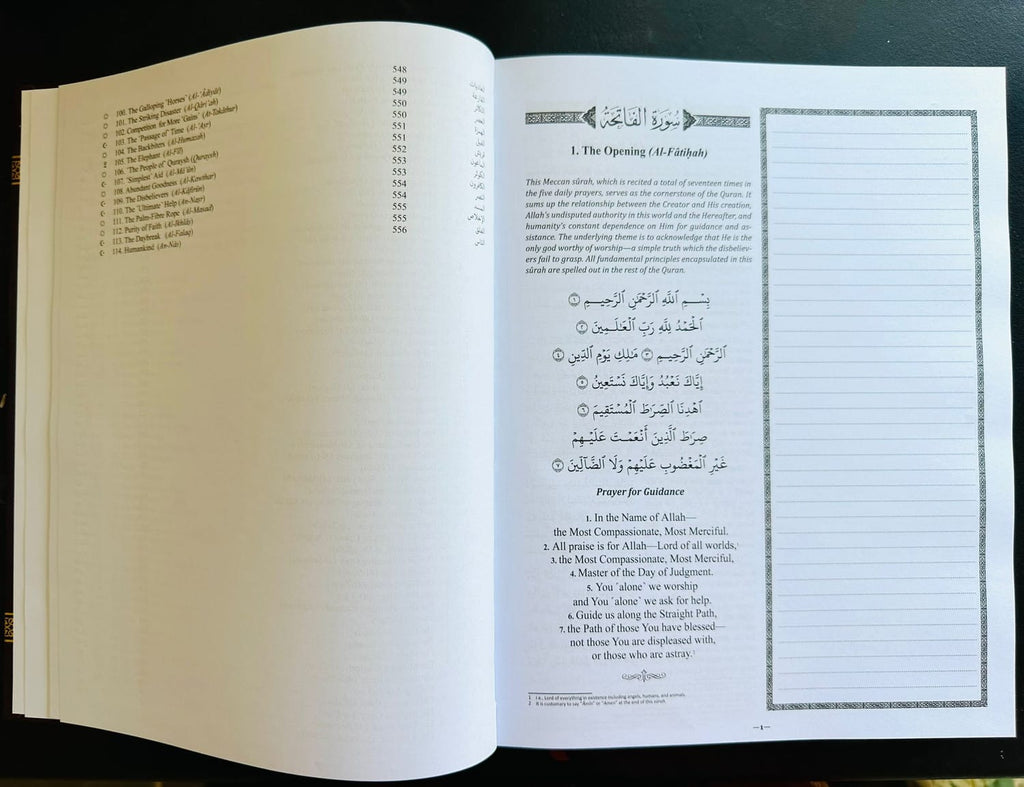 100. The Galloping ˹Horses˺ (Al-'Âdiyât) 548
101. The Striking Disaster (Al-Qâri'ah) 549
102. Competition for More ˹Gains˺ (At-Takâthur) 549
103. The ˹Passage of˺ Time (Al-'Aṣr) 550
104. The Backbiters (Al-Humazah) 550
105. The Elephant (Al-Fîl) 551
106. ˹The People of˺ Quraysh (Quraysh) 551
107. ˹Simplest˺ Aid (Al-Mâ'ûn) 552
108. Abundant Goodness (Al-Kawthar) 553
109. The Disbelievers (Al-Kâfirûn) 553
110. The ˹Ultimate˺ Help (An-Naṣr) 554
111. The Palm-Fibre Rope (Al-Masad) 554
112. Purity of Faith (Al-Ikhlâṣ) 555
113. The Daybreak (Al-Falaq) 555
114. Humankind (An-Nâs) 556
سُورَةُ الفَاتِحَةِ
1. The Opening (Al-Fâtiḥah)
This Meccan sûrah, which is recited a total of seventeen times in
the five daily prayers, serves as the cornerstone of the Quran. It
sums up the relationship between the Creator and His creation,
Allah's undisputed authority in this world and the Hereafter, and
humanity's constant dependence on Him for guidance and as-
sistance. The underlying theme is to acknowledge that He is the
only god worthy of worship—a simple truth which the disbeliev-
ers fail to grasp. All fundamental principles encapsulated in this
sûrah are spelled out in the rest of the Quran.
بِسْمِ ٱللَّهِ ٱلرَّحْمَٰنِ ٱلرَّحِيمِ ١
ٱلْحَمْدُ لِلَّهِ رَبِّ ٱلْعَٰلَمِينَ ٢
ٱلرَّحْمَٰنِ ٱلرَّحِيمِ ٣ مَٰلِكِ يَوْمِ ٱلدِّينِ ٤
إِيَّاكَ نَعْبُدُ وَإِيَّاكَ نَسْتَعِينُ ٥
ٱهْدِنَا ٱلصِّرَٰطَ ٱلْمُسْتَقِيمَ ٦
صِرَٰطَ ٱلَّذِينَ أَنْعَمْتَ عَلَيْهِمْ
غَيْرِ ٱلْمَغْضُوبِ عَلَيْهِمْ وَلَا ٱلضَّآلِّينَ ٧
Prayer for Guidance
1. In the Name of Allah—
the Most Compassionate, Most Merciful.
2. All praise is for Allah—Lord of all worlds,1
3. the Most Compassionate, Most Merciful,
4. Master of the Day of Judgment.
5. You ˹alone˺ we worship
and You ˹alone˺ we ask for help.
6. Guide us along the Straight Path,
7. the Path of those You have blessed—
not those You are displeased with,
or those who are astray.2
1 i.e., Lord of everything in existence including angels, humans, and animals.
2 It is customary to say "Âmîn" or "Amen" at the end of this sûrah.
—1—